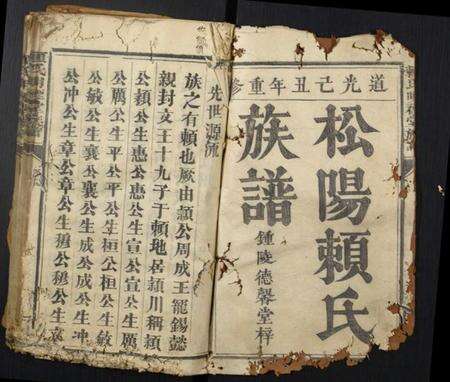 道光己丑年重修
松陽賴氏
族譜
鍾陵德馨堂梓
先世源流
族之有賴也厥由顥公周成王寵錫懿
親封文王十九子于賴地居潁川稱穎
公穎公生惠公惠公生宣公宣公生厲
公厲公生平公平公生桓公桓公生敏
公敏公生襄公襄公生成公成公生冲
公冲公生章公章公生